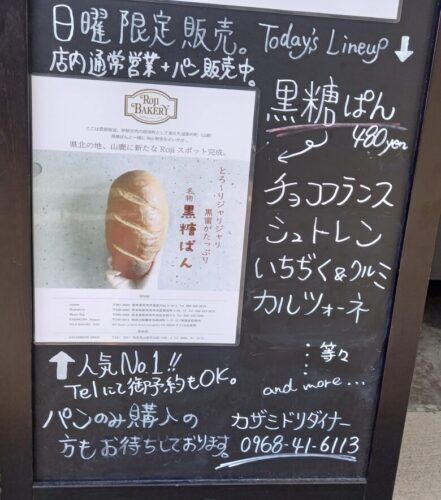 日曜限定販売。
店内通常営業+パン販売中。
Today's Lineup ↓
ROJI
BAKERY
県北の地、山鹿に新たなRojiスポット完成。
とろ〜りジャリジャリ
黒蜜がたっぷり
名物 黒糖ぱん
黒糖ぱん
480yen
チョコフランス
シュトレン
いちぢく&クルミ
カルツォーネ
…等々
and more...
↑人気No.1!!
Telにて御予約もOK。
パンのみ購入の
方もお待ちしております。
カザミドリダイナー
0968-41-6113